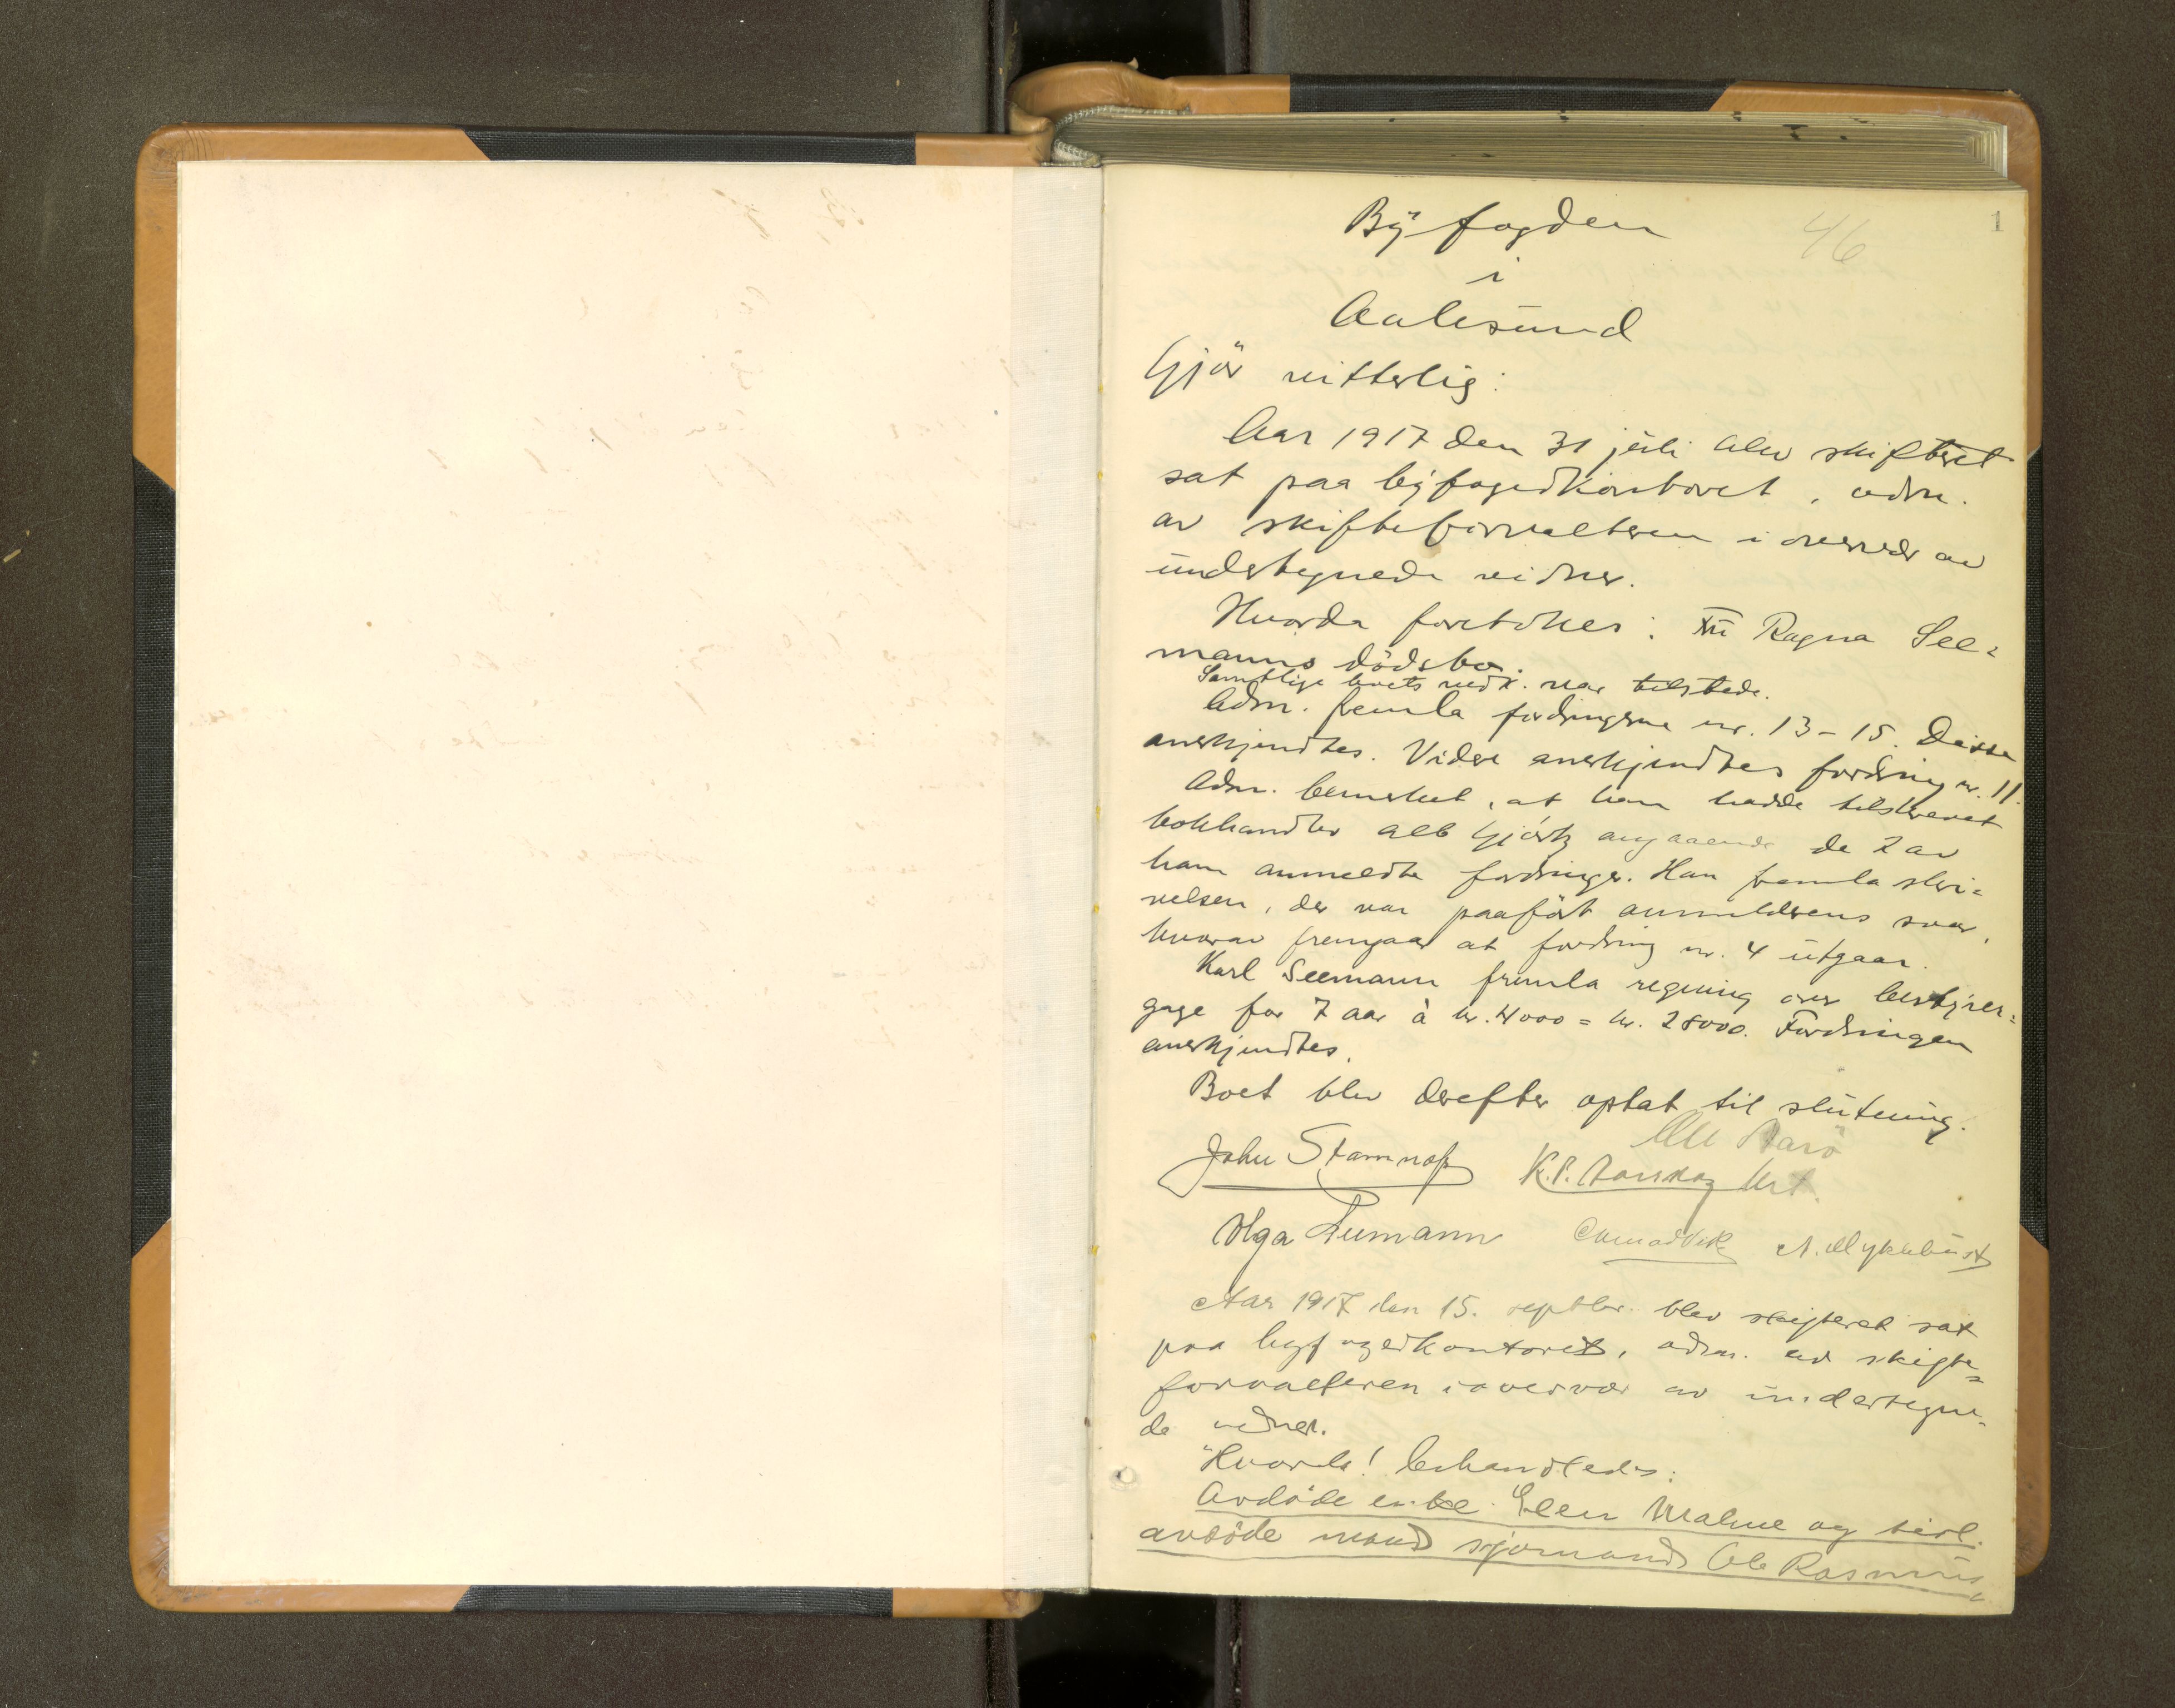 46
1
Byfogden
i
Aalesund
Gjør vitterlig:
Aar 1917 den 31 juli blev skifteret
sat paa byfogedkontoret, adm.
av skifteforvalteren i overvær av
undertegnede vidner.
Hvorda foretokes: Ragna See=
manns dødsbo.
Samtlige boets vedk. var tilstede.
Adm. fremla fordringerne nr. 13-15. Disse
anerkjendtes. Videre anerkjendtes fordring nr. 11.
Adm. bemerket, at han hadde tilskrevet
bokhandler Alb Gjørtz angaaende de 2 av
ham anmeldte fordringer. Han fremla skri=
velsen, der var paaført anmelderens svar,
hvorav fremgaar at fordring nr. 4 utgaar.
Karl Seemann fremla regning over bestyrer=
gage for 7 aar à kr. 4000 = kr. 28000. Fordringen
anerkjendtes.
Boet blev derefter optat til slutning.
John Stamnas K.P. Aarskog
Olga Seemann N. Myklebust
Aar 1917 den 15. septbr. blev skifteret sat
paa byfogedkontoret, adm. av skifte=
forvalteren i overvær av undertegne=
de vidner.
Hvorda! behandledes:
Avdøde enke Elen Malme og tidl.
avdøde mand sjømand Ole Rasmus